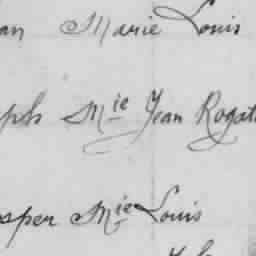 an Marie Louis
ph Mie Jean Rogat
sper Mie Louis